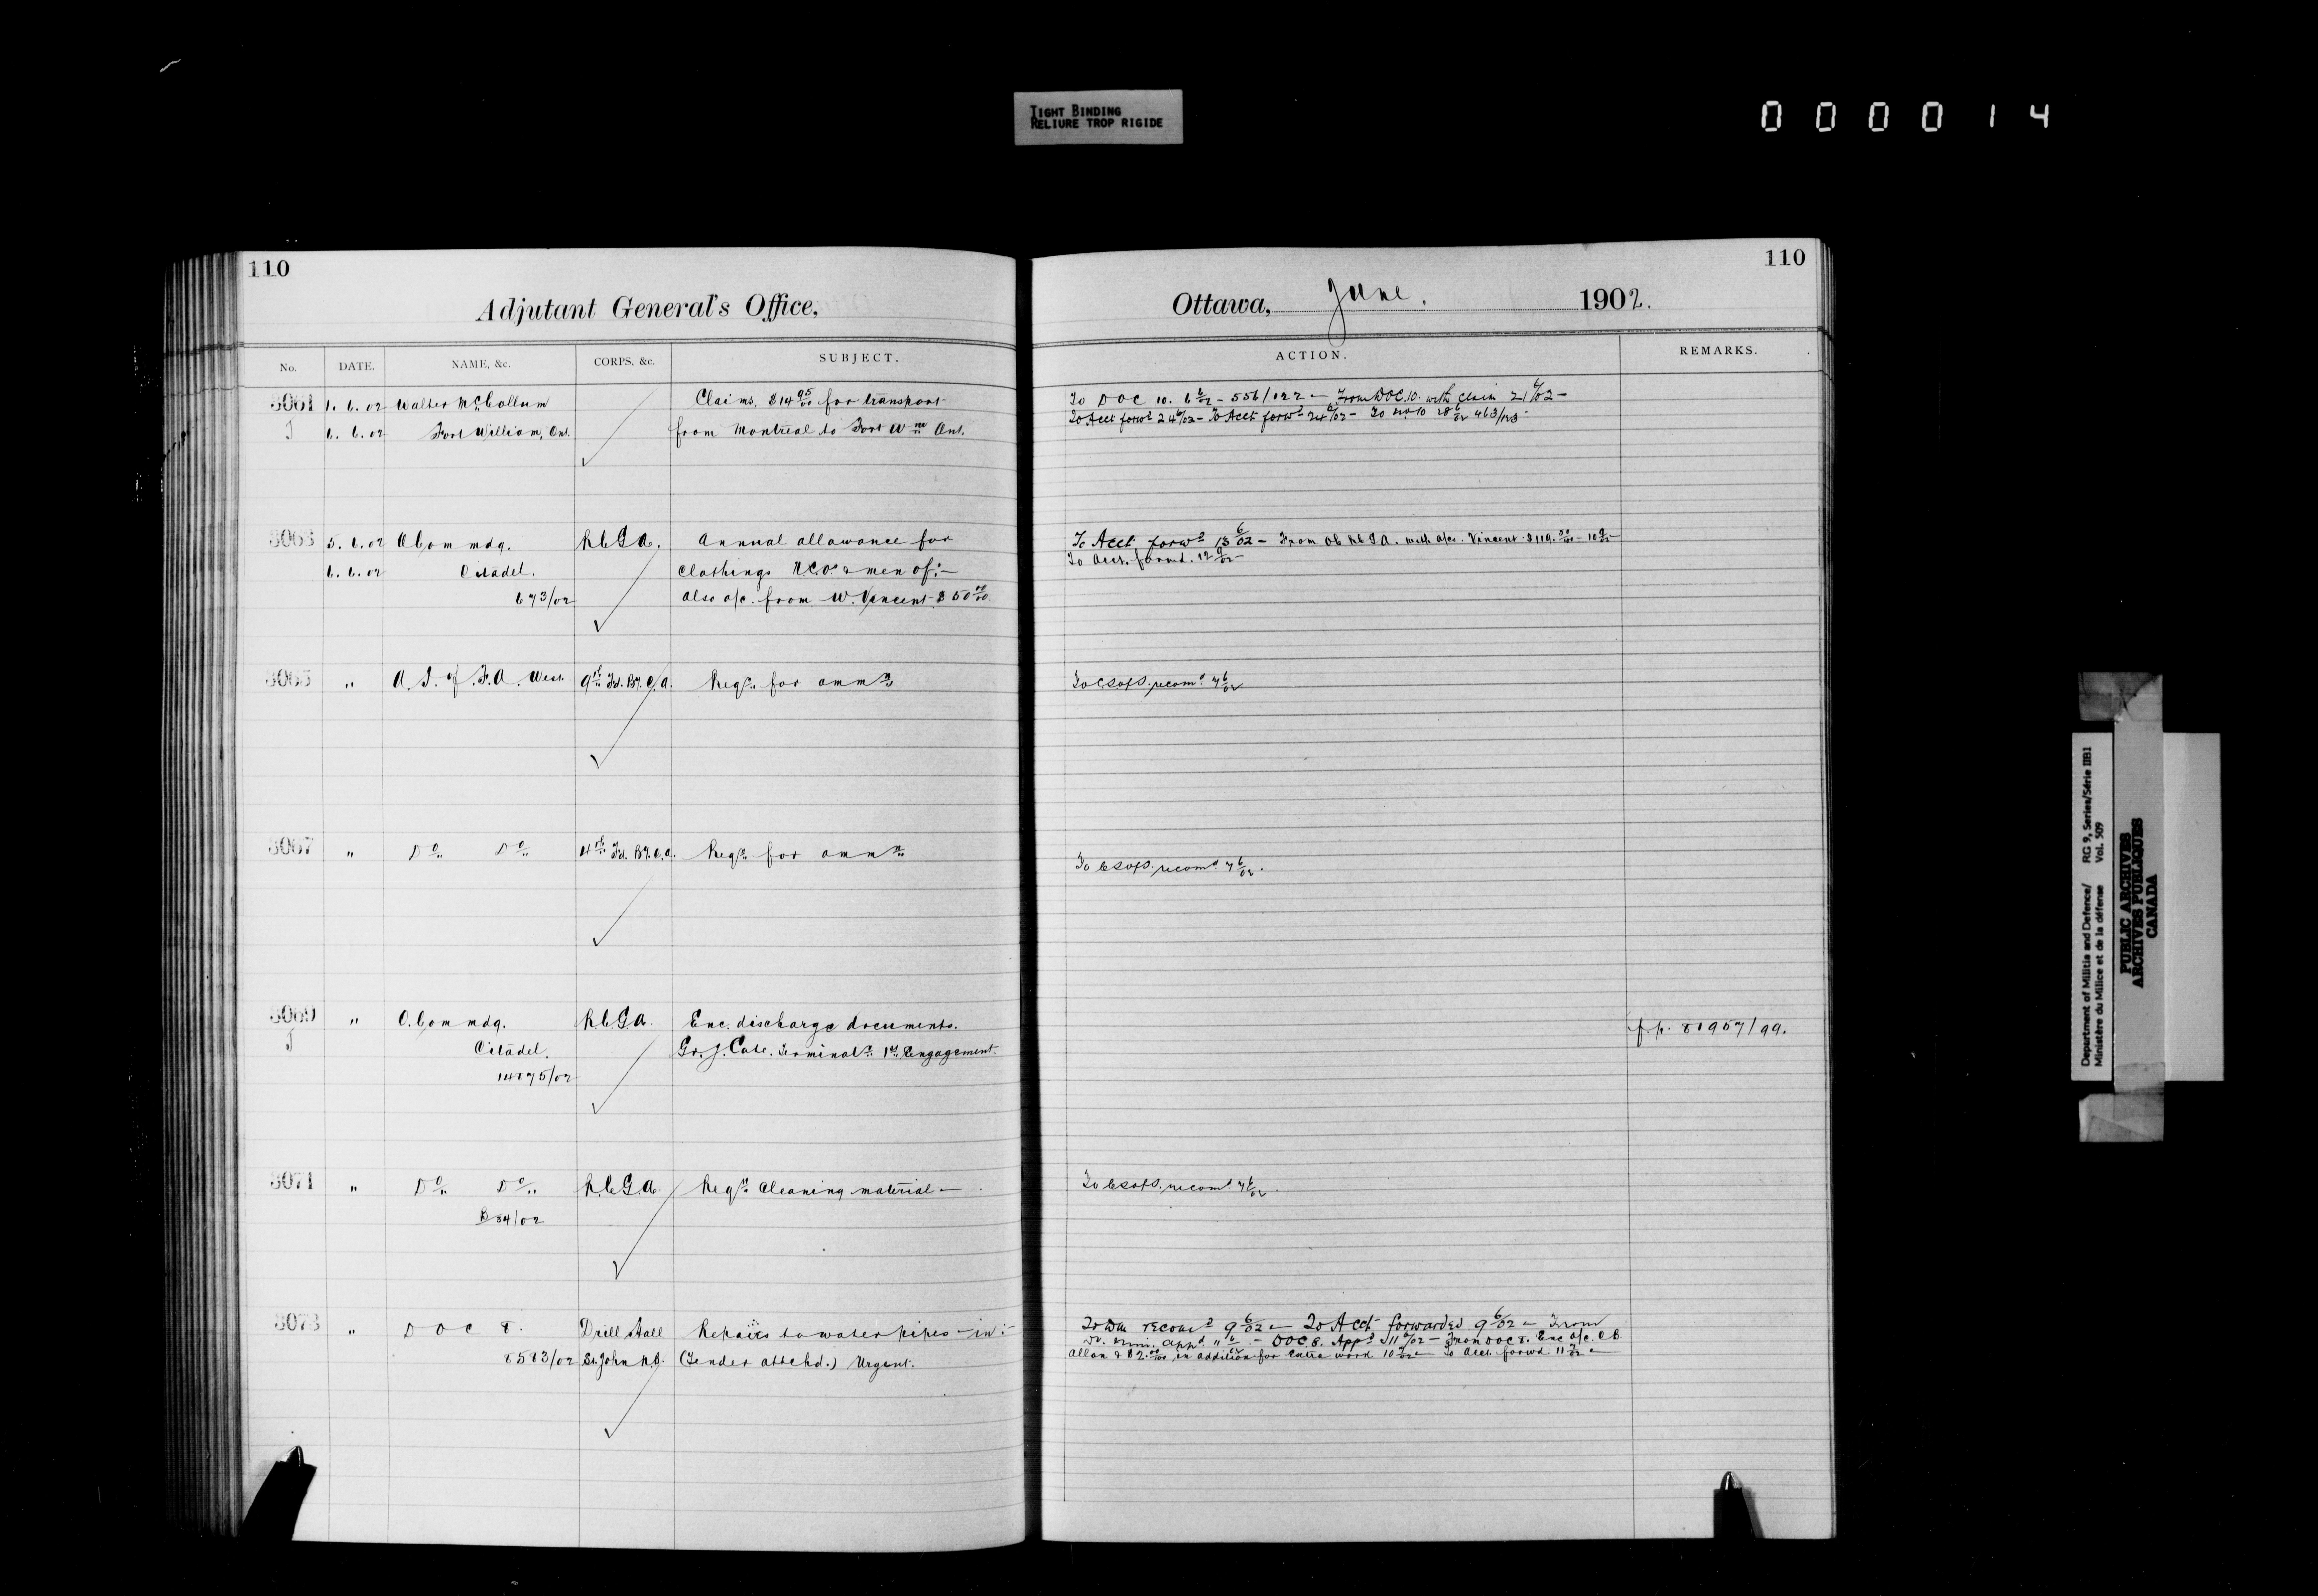 TIGHT BINDING
RELIURE TROP RIGIDE
000014
110
110
Adjutant General's Office,
Ottawa, June. 1902.
No. DATE. NAME, &c. CORPS, &c. SUBJECT. ACTION. REMARKS.
8061 1.6.02 Walter McCollum Claims, $14 95/00 for transport
J 6.6.02 Fort William, Ont. from Montreal to Fort Wm Ont.
To DOC 10. 6 6/02 - 556/022 - From DOC.10. with claim 21 6/02 -
To Acct forwd 24 6/02 - To Acct forwd 24 6/02 - To 10 28 6/02 463/123
8063 5.6.02 O Commdg. R.C.G.A. Annual allowance for
6.6.02 Citadel. Clothings N.C.O's & men of:-
673/02 also a/c. from W. Vincent $50 00/00.
To Acct forwd 13 6/02 - From OC RCGA. with a/c. Vincent $119. 50/100 - 10 9/02 -
To Acct. forwd. 12 9/02 -
8065 " A.I. of F.A. West 9th Fd. By. C.A. Reqn. for ammn
To CSofS. recomd 7 6/02
8067 " Do Do 4th Fd. By. C.A. Reqn. for ammn
To CSofS. recomd 7 6/02.
8069 " O. Commdg. R.C.G.A. Enc. discharge documents.
J Citadel. Gr. J. Cate. Terminatn 1st Rengagement.
14875/02
f.p. 81957/99.
8071 " Do Do R.C.G.A. Reqn Cleaning material -
B 84/02
To CSofS. recomd. 7 6/02.
8073 " DOC 8. Drill Hall Repairs to water pipes - in :-
8583/02 St. John N.B. (Tender attchd.) Urgent.
To DM recomd 9 6/02 - To Acct forwarded 9 6/02 - From
appd " 6/02 - DOC 8. Appd 11 6/02 - From DOC 8. Enc a/c. C.B.
Allan & $2. 00/100 in addition for extra work 10 7/02 - To Acct. forwd 11 7/02 -
Department of Militia and Defence/ RG 9, Series/Série IIB1
Ministère du Milice et de la défense Vol. 509
PUBLIC ARCHIVES
ARCHIVES PUBLIQUES
CANADA